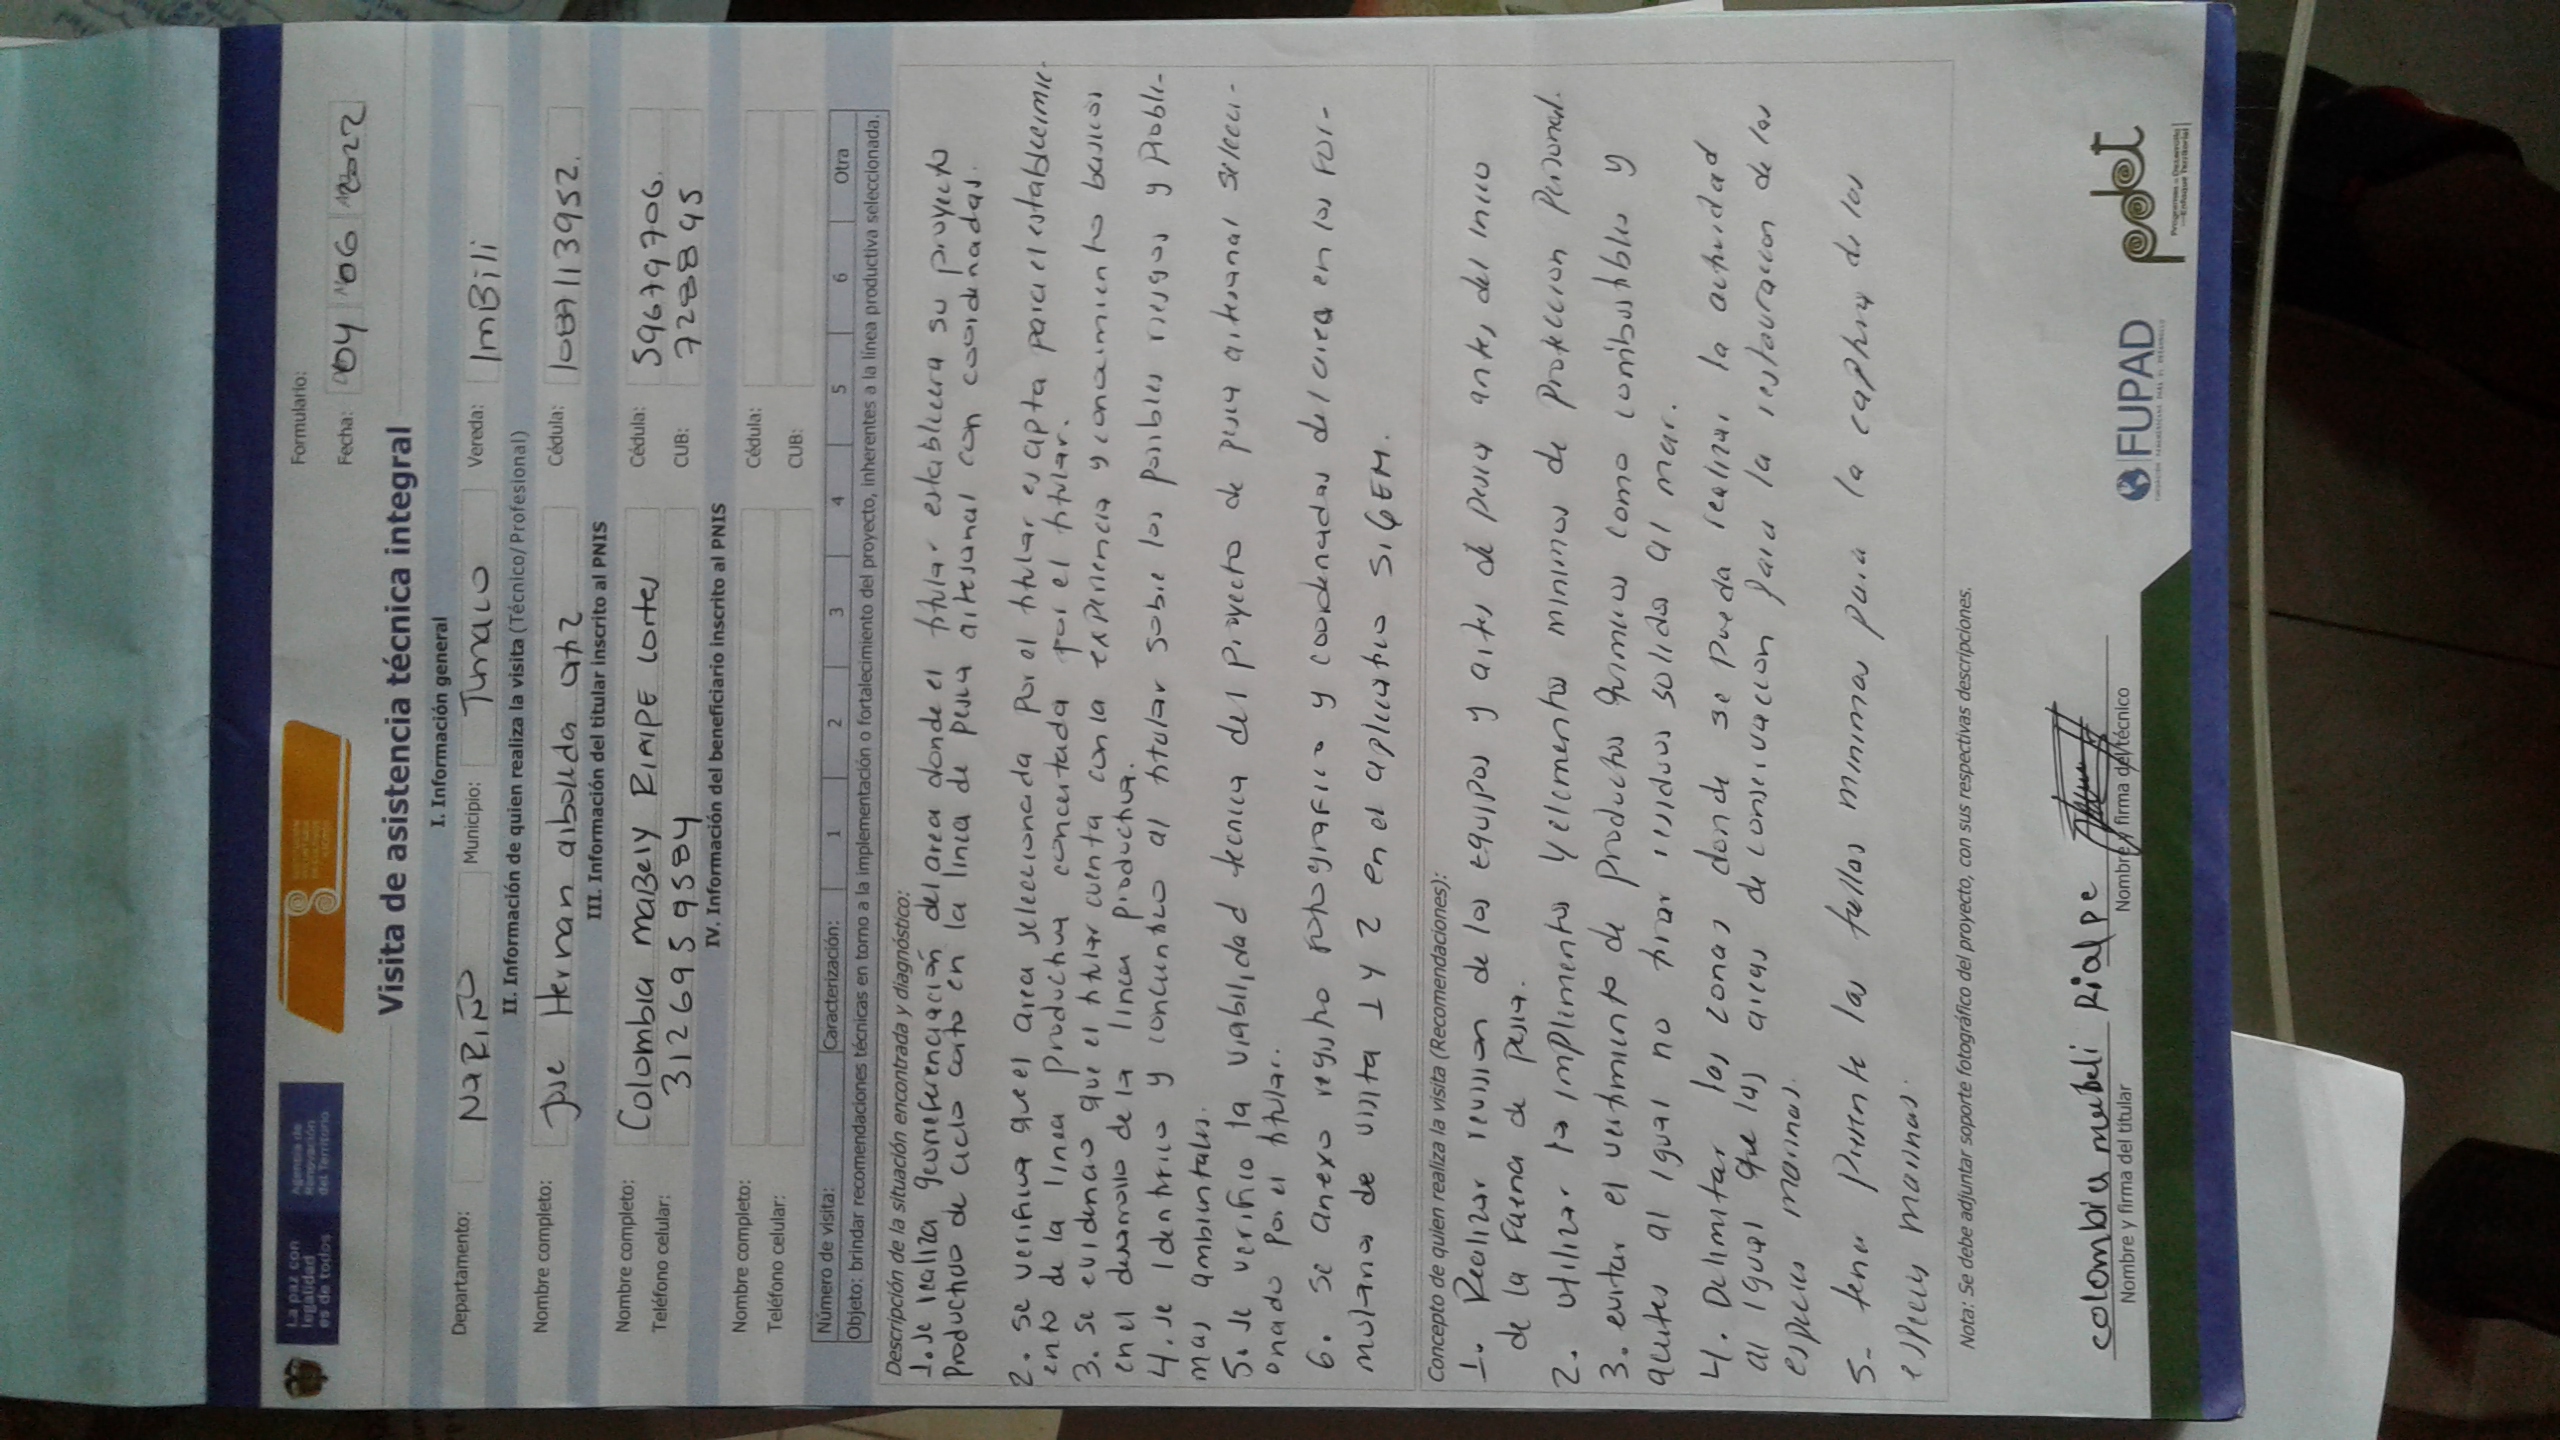 La paz con
legalidad
es de todos
Agencia de
Renovación
del Territorio
Formulario:
Fecha: 04 06 2022
Visita de asistencia técnica integral
I. Información general
Departamento: NaRIÑO Municipio: Tumaco Vereda: ImBili
II. Información de quien realiza la visita (Técnico/Profesional)
Nombre completo: Jose Hernan arboleda ortiz Cédula: 1087113952.
III. Información del titular inscrito al PNIS
Nombre completo: Colombia maBely RIAlPE cortes Cédula: 59679706.
Teléfono celular: 3126959584 CUB: 7288895
IV. Información del beneficiario inscrito al PNIS
Nombre completo: Cédula:
Teléfono celular: CUB:
Número de visita: Caracterización: 1 2 3 4 5 6 Otra
Objeto: brindar recomendaciones técnicas en torno a la implementación o fortalecimiento del proyecto, inherentes a la línea productiva seleccionada.
Descripción de la situación encontrada y diagnóstico:
1. se realiza georreferenciación del area donde el titular establecera su proyecto
Productivo de ciclo corto en la linea de pesca artesanal con coordenadas.
2. se verifica que el area seleccionada por el titular es apta para el establecimie-
ento de la linea productiva concertada por el titular.
3. se evidencio que el titular cuenta con la experiencia y conocimiento basicos
en el desarrollo de la linea productiva.
4. se identifico y concientizo al titular sobre los posibles riesgos y proble-
mas ambientales.
5. se verifico la viabilidad tecnica del proyecto de pesca artesanal selecci-
onado por el titular.
6. se anexo registro fotografico y coordenadas del area en los for-
mularios de visita 1 y 2 en el aplicativo SIGEM.
Concepto de quien realiza la visita (Recomendaciones):
1. Realizar revision de los equipos y artes de pesca antes del inicio
de la Faena de pesca.
2. utilizar los implementos y elementos minimos de proteccion personal.
3. evitar el vertimiento de productos quimicos como combustibles y
aceites al igual no tirar residuos solidos al mar.
4. Delimitar las zonas donde se pueda realizar la actividad
al igual que las areas de conservaccion para la restauracion de las
especies marinas.
5- tener presente las tallas minimas para la captura de las
especies marinas.
Nota: Se debe adjuntar soporte fotográfico del proyecto, con sus respectivas descripciones.
colombia mabeli Rialpe
Nombre y firma del titular
Nombre y firma del técnico
FUPAD
pdet
Programas de Desarrollo
con Enfoque Territorial